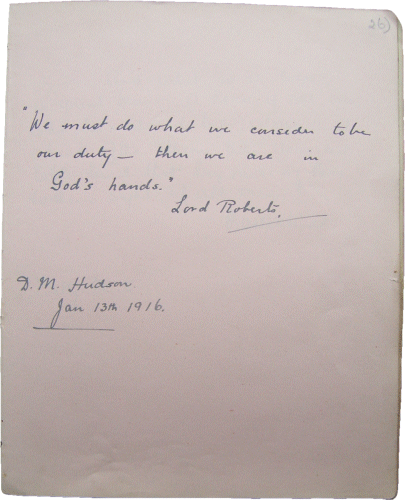 26)
"We must do what we consider to be
our duty — then we are in
God's hands."
Lord Roberts.
D. M. Hudson
Jan 13th 1916.